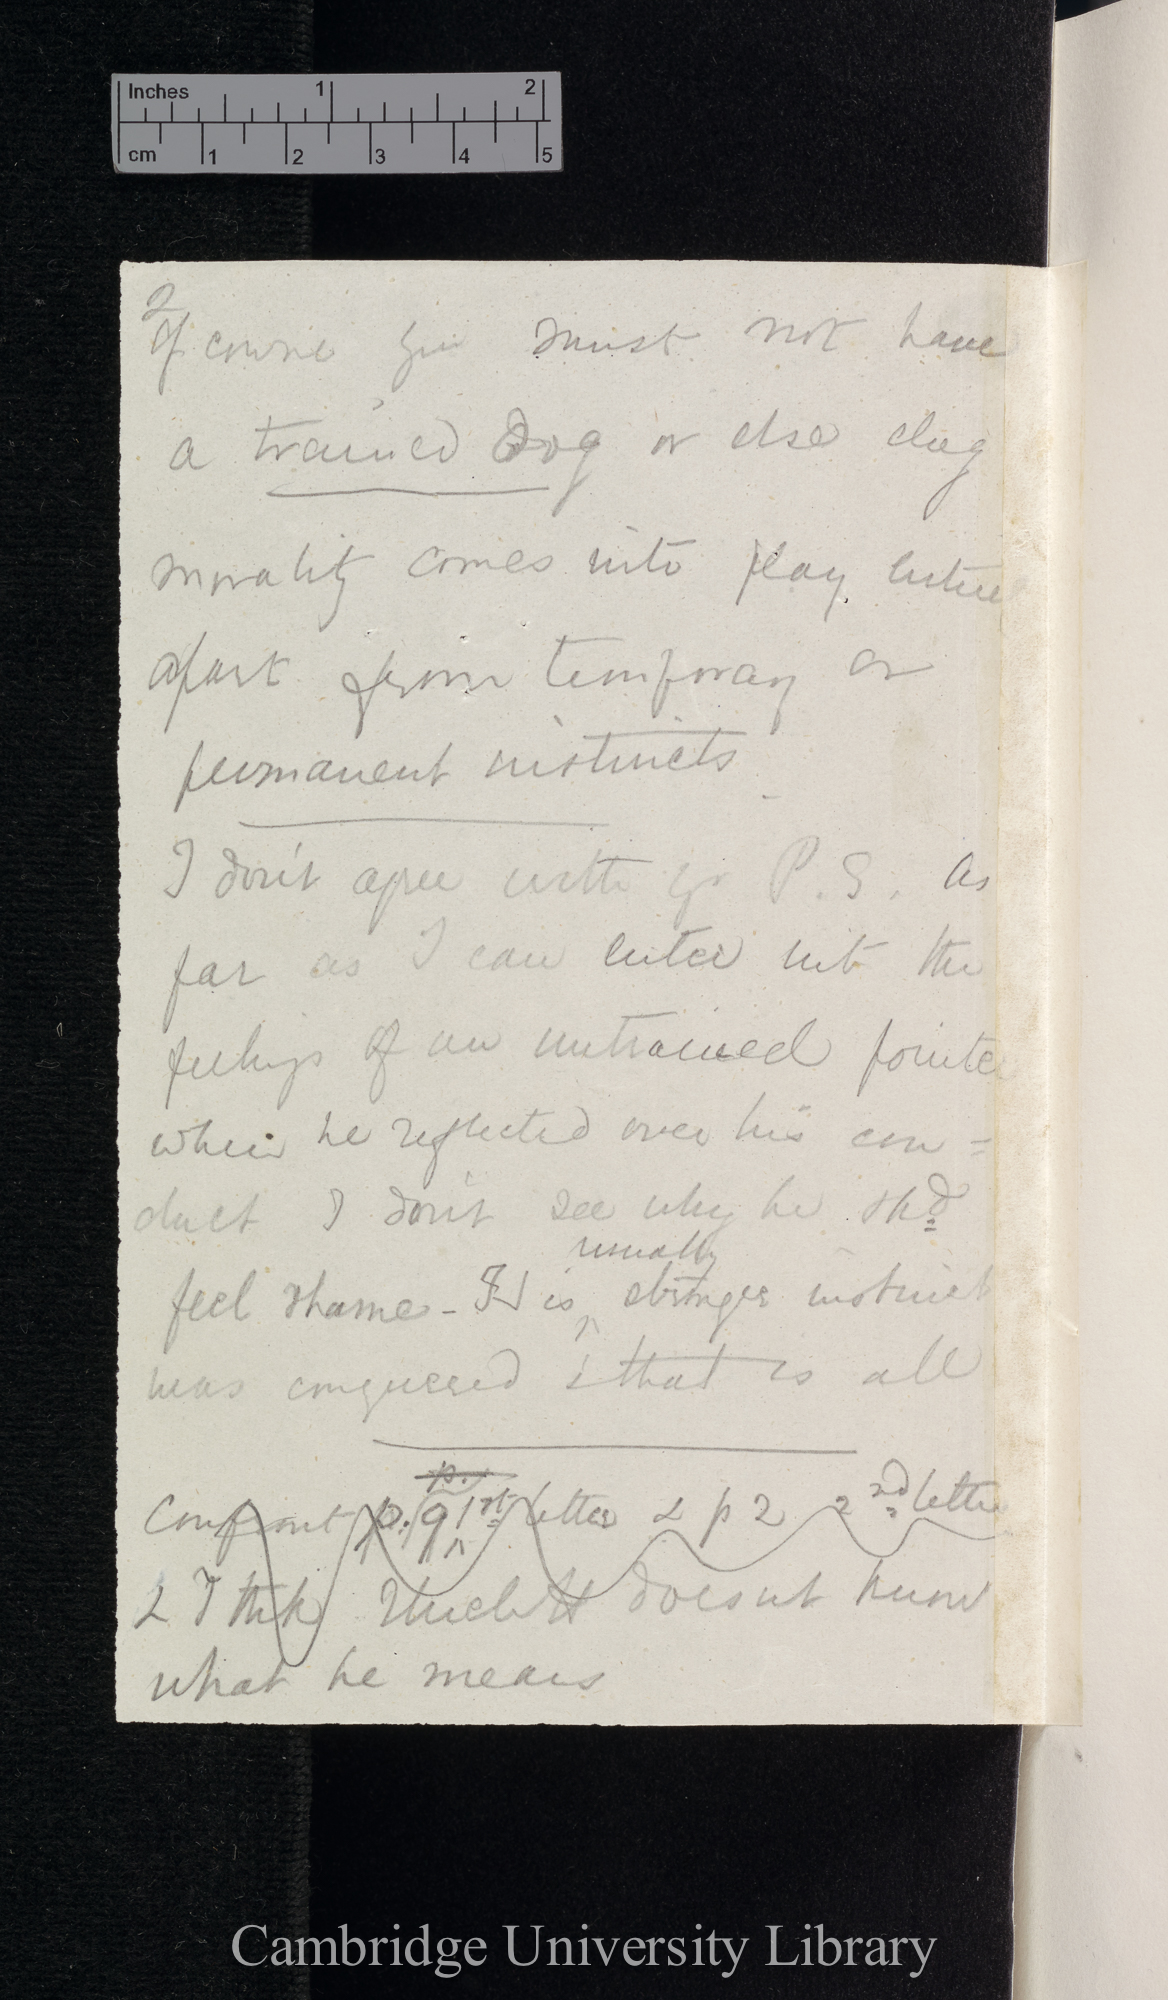 Inches 1 2
cm 1 2 3 4 5
2
Of course you must not have
a trained Dog or else dog
morality comes into play entire
apart from temporary or
permanent instincts
I don't agree with yr P.S. As
far as I can enter into the
feelings of an untrained pointer
when he reflected over his con=
duct I don't see why he shd
usually
feel shame - is stronger instinct
was conquered & that is all
p.
Confront p. 9 1st letter & p 2 2nd letter
& I think doesnt know
what he means
Cambridge University Library